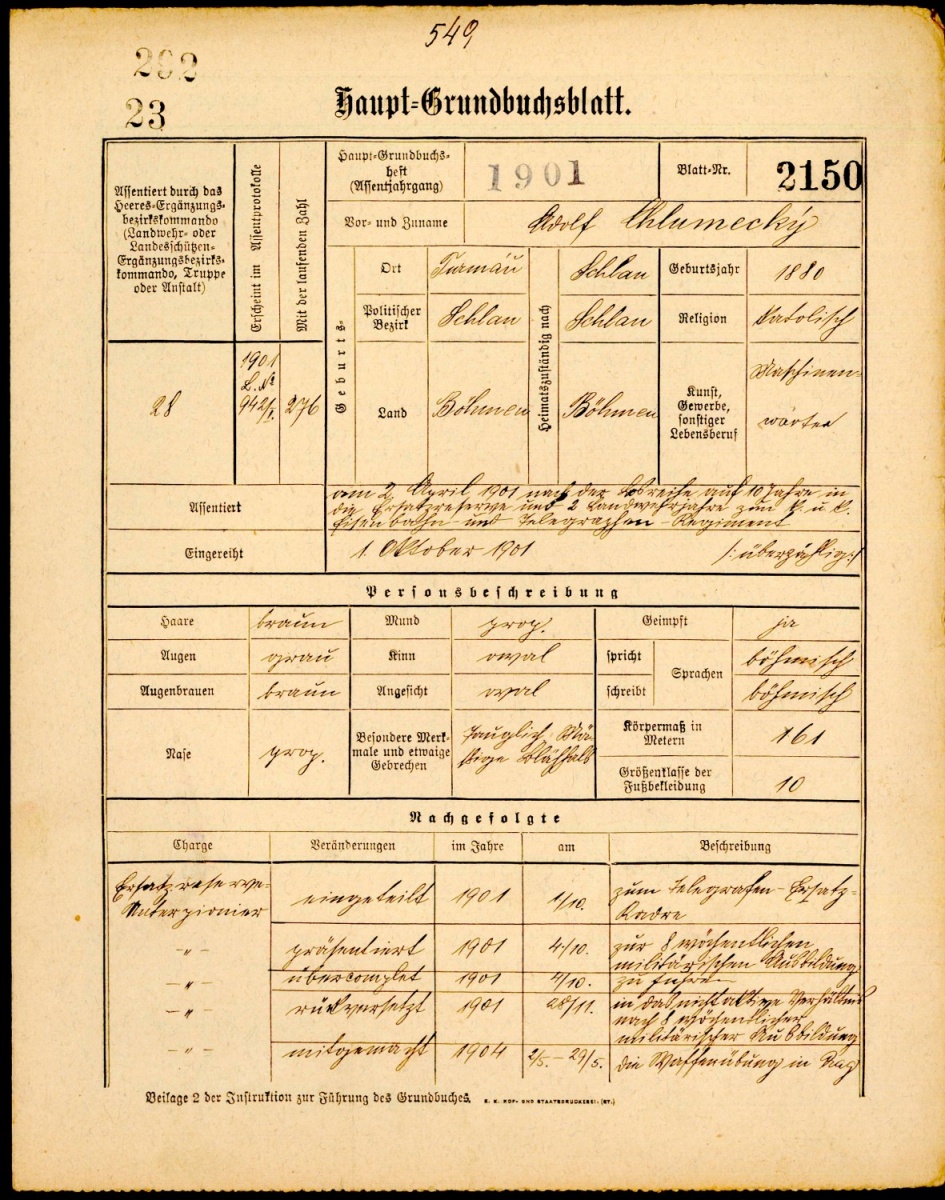 549
292
23
Haupt-Grundbuchsblatt.
Assentiert durch das
Heeres-Ergänzungs-
bezirkskommando
(Landwehr- oder
Landesschützen-
Ergänzungsbezirks-
kommando, Truppe
oder Anstalt)
Erscheint im Assentprotokolle
Mit der laufenden Zahl
Haupt-Grundbuchs-
heft
(Assentjahrgang)
1901
Blatt-Nr.
2150
Vor- und Zuname
Adolf Chlumecký
Geburts-
Ort
Heimatszuständig nach
Schlan
Geburtsjahr
1880
Politischer
Bezirk
Schlan
Schlan
Religion
Katolisch
28
1901
L. No
942/I.
276
Land
Böhmen
Böhmen
Kunst,
Gewerbe,
sonstiger
Lebensberuf
Maschinen-
wärter
Assentiert
am 2 April 1901 nach der Losreihe auf 10 Jahre in
die Ersatzreserve und 2 Landwehrjahre zum k. u. k.
Eisenbahn und Telegraphen-Regiment
Eingereiht
1. Oktober 1901 /:überzählig:/
Personsbeschreibung
Haare
braun
Mund
prop.
Geimpft
ja
Augen
grau
Kinn
oval
spricht
Sprachen
böhmisch
Augenbrauen
braun
Angesicht
oval
schreibt
böhmisch
Nase
prop.
Besondere Merk-
male und etwaige
Gebrechen
Tauglich, Mä-
ßige Blähhals
Körpermaß in
Metern
161
Größenklasse der
Fußbekleidung
10
Nachgefolgte
Charge
Veränderungen
im Jahre
am
Beschreibung
Ersatzreserve-
Unterpionier
eingeteilt
1901
1/10.
zum Telegrafen-Ersatz-
Kadre
-"-
präsentiert
1901
4/10.
zur 8 wöchentlichen
militärischen Ausbildung
-"-
übercomplet
1901
4/10.
zu führen
-"-
rückversetzt
1901
28/11.
in das nichtaktive Verhältnis
nach 8 wöchentlicher
militärischer Ausbildung
-"-
mitgemacht
1904
2/5. - 29/5.
die Waffenübung in
Beilage 2 der Instruktion zur Führung des Grundbuches.
K. K. HOF- UND STAATSDRUCKEREI. (ST.)